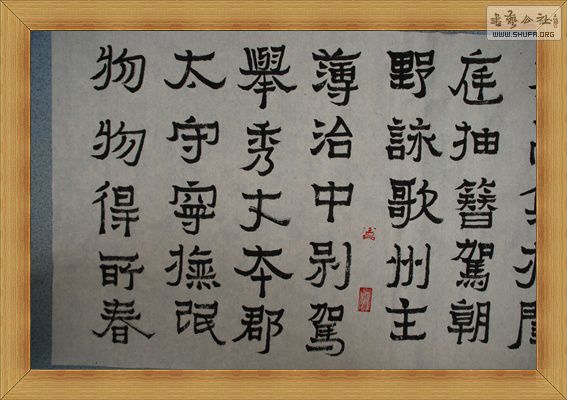 庭抽簪駕朝
野詠歌州主
薄治中别駕
舉秀才本郡
太守寧撫氓
物物得所春
书艺公社
WWW.SHUFA.ORG